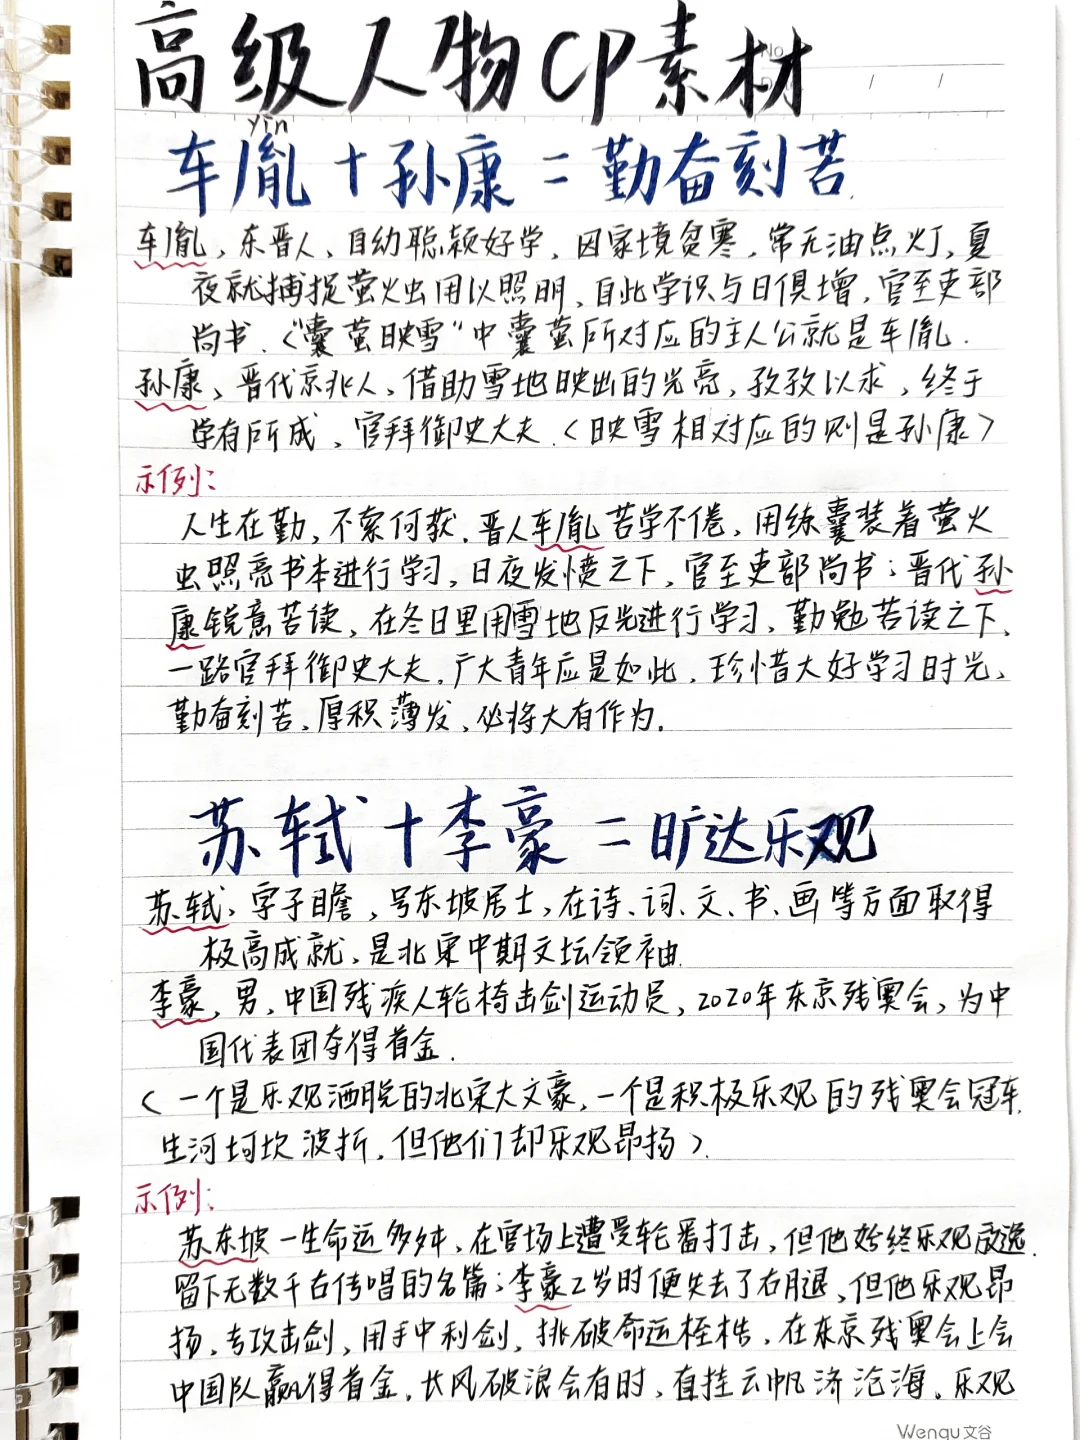 高级人物CP素材
No
yǐn
车胤+孙康=勤奋刻苦.
车胤，东晋人，自幼聪颖好学，因家境贫寒，常无油点灯，夏
夜就捕捉萤火虫用以照明，自此学识与日俱增，官至吏部
尚书.〈"囊萤映雪"中囊萤所对应的主人公就是车胤.
孙康，晋代京兆人，借助雪地映出的光亮，孜孜以求，终于
学有所成，官拜御史大夫.〈映雪相对应的则是孙康〉
示例：
人生在勤，不索何获.晋人车胤苦学不倦，用练囊装着萤火
虫照亮书本进行学习，日夜发愤之下，官至吏部尚书；晋代孙
康锐意苦读，在冬日里用雪地反光进行学习，勤勉苦读之下，
一路官拜御史大夫.广大青年应是如此，珍惜大好学习时光，
勤奋刻苦，厚积薄发，必将大有作为.
苏轼+李豪=旷达乐观
苏轼，字子瞻，号东坡居士，在诗、词、文、书、画等方面取得
极高成就，是北宋中期文坛领袖.
李豪，男，中国残疾人轮椅击剑运动员，2020年东京残奥会，为中
国代表团夺得首金.
〈一个是乐观洒脱的北宋大文豪，一个是积极乐观的残奥会冠军，
生河坷坎波折，但他们却乐观昂扬〉.
示例：
苏东坡一生命运多舛，在官场上遭受轮番打击，但他始终乐观放逸，
留下无数千古传唱的名篇；李豪2岁时便失去了右腿，但他乐观昂
扬，专攻击剑，用手中利剑，挑破命运桎梏，在东京残奥会上会
中国队赢得首金.长风破浪会有时，直挂云帆济沧海。乐观
Wengu文谷